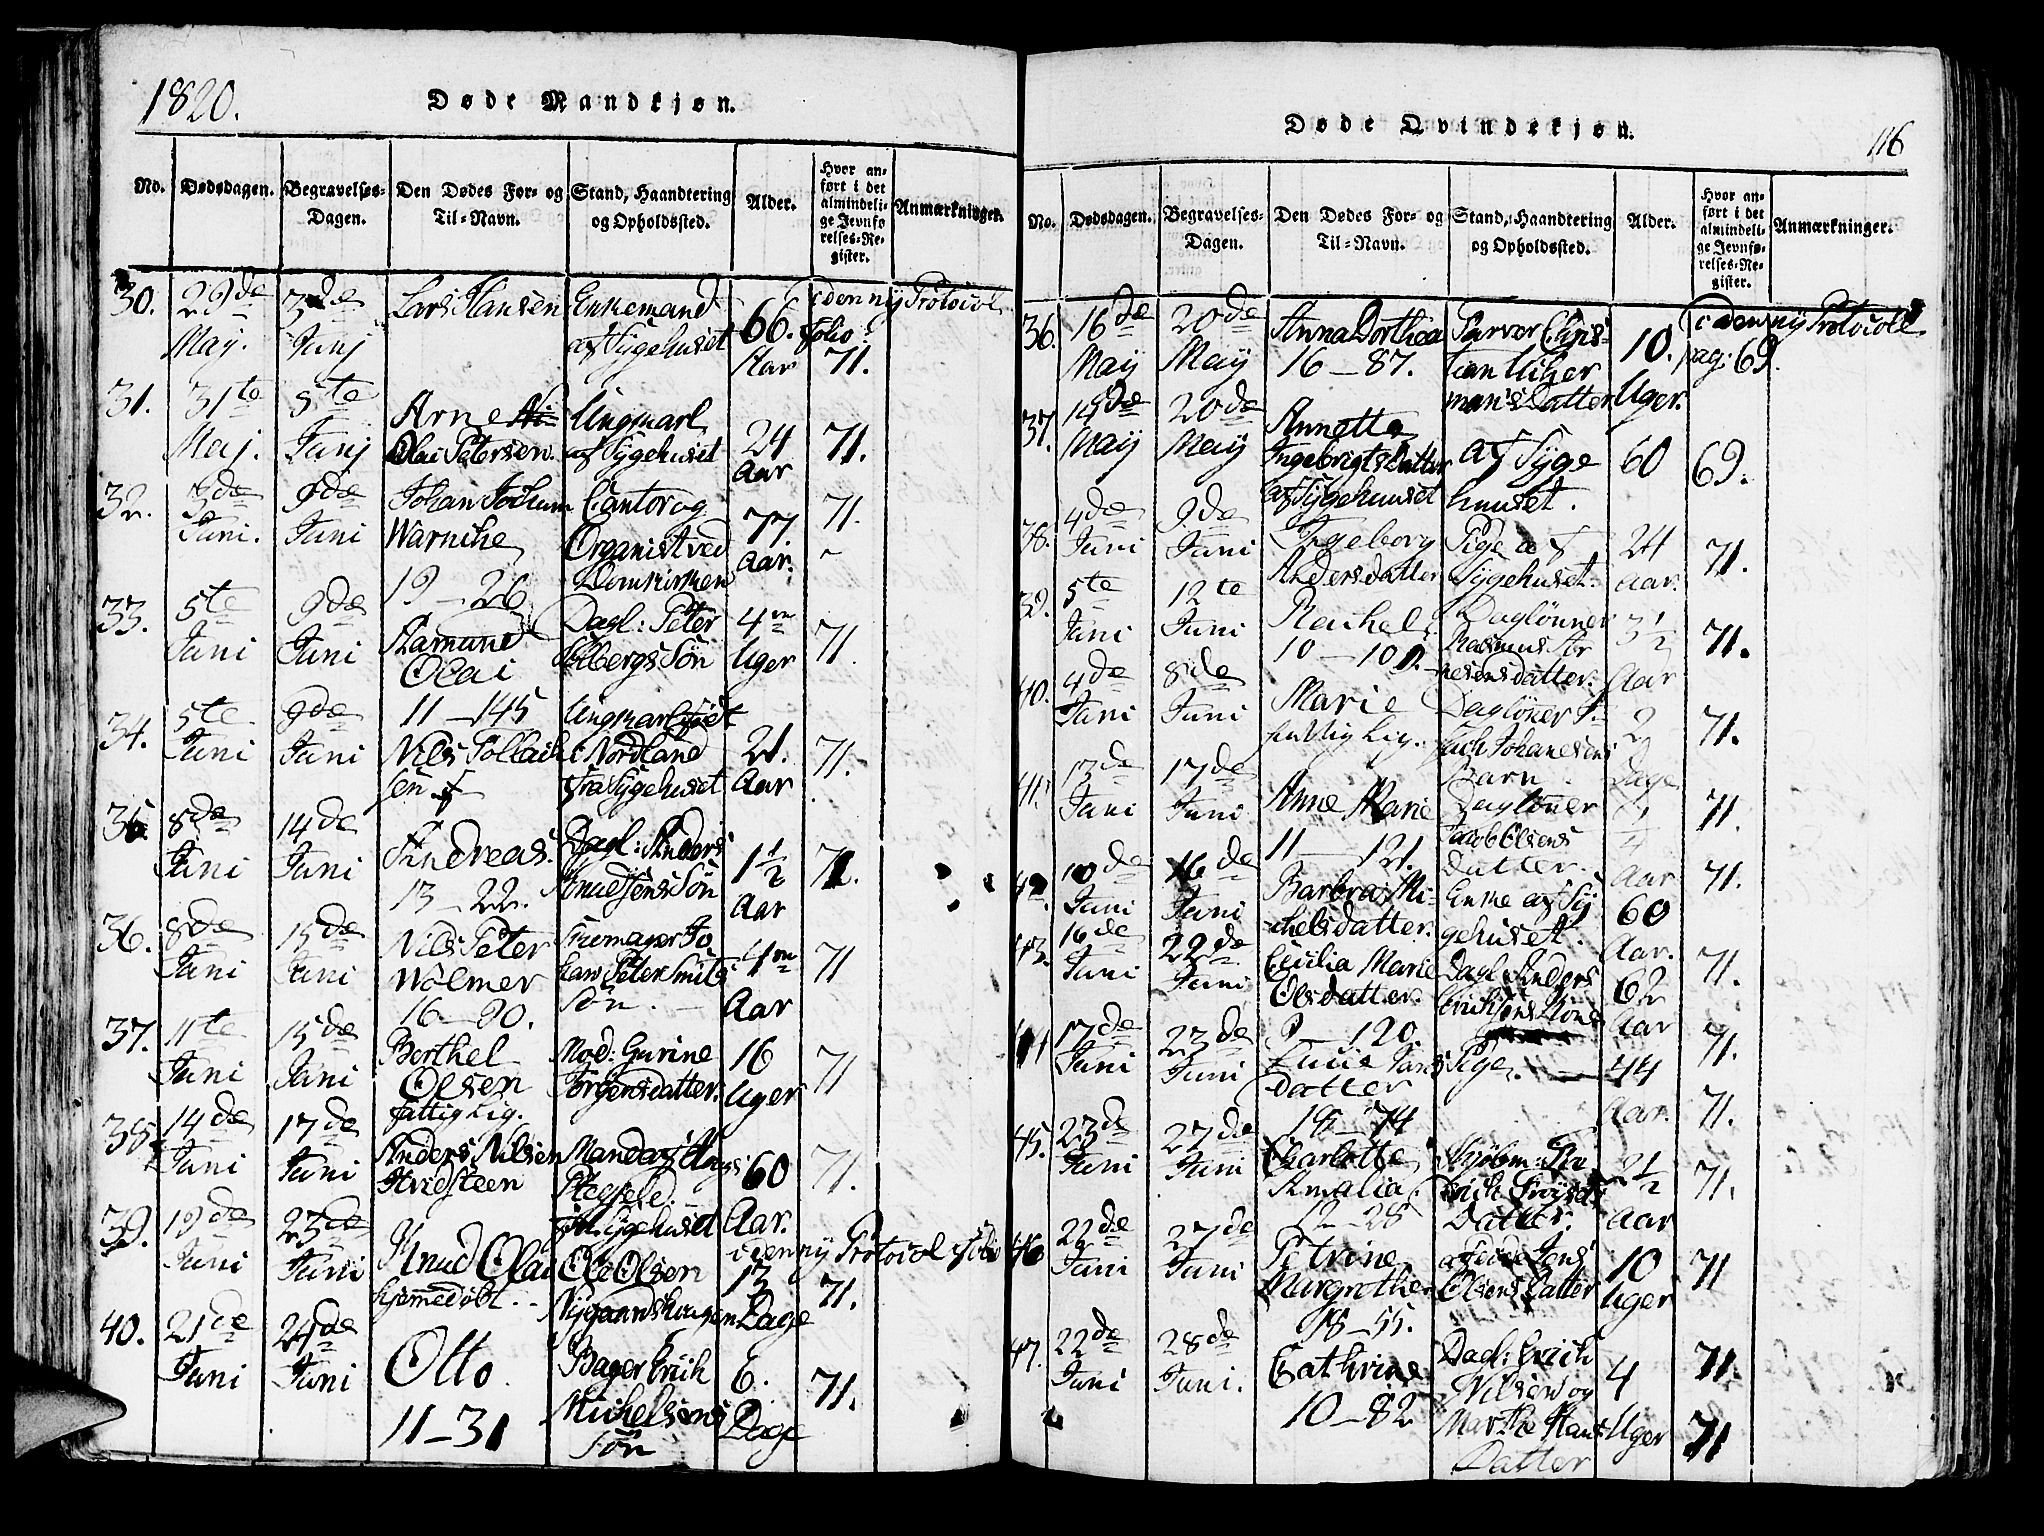 1820.
Døde Mandkjøn.
No.
Dødsdagen.
Begravelses-
Dagen.
Den Dødes For- og
Til-Navn.
Stand, Haandtering
og Opholdssted.
Alder.
Hvor an-
ført i det
almindeli-
ge Jevnfø
relses-Re-
gister.
Anmærkninger.
30. 29de May. 3de Junj Lars Hansen Enkemand
af Sygehuset 66. Aar
i den ny Protocol
folio: 71.
31. 31te Maj. 5te Junj Arne
Olai Petersen. Ungkarl
af Sygehuset 24 Aar 71.
32. 3de Juni. 9de Juni Johan Jochum
Warniche
19-26 Cantor og
Organist ved
Domkirken 77 Aar. 71.
33. 5te Juni 9de Juni Aamund
Olai
11-145 Dagl: Peter
Søn 4 Uger 71.
34. 5te Juni 9de Juni Nils Tollach
sen Ungkarl
i Nordland
fra Sygehuset 21 Aar 71.
35 8de Juni 14de Juni Andreas.
13-22. Dagl: Anders
Knudsens Søn 1½ Aar 71.
36. 8de Juni 15de Juni Nils Peter
Wolmer
16-90. Skomager Jo
han Peter Smits
søn. 4 Aar 71
37. 11te Juni 15de Juni Berthel
Olsen
fattig Lig. Mod: Gurine
Jørgensdatter. 16 Uger 71
38. 14de Juni 17de Juni Anders Nilsen
Hvidsteen Mand af
fra Sygehuset 60 Aar. 71.
39. 19de Juni 23de Juni Knud Olai
hjemmedøbt. Ole Olsen
Nygaardshougen 13 Dage
i den ny Protocol Folio
71.
40. 21de Juni 24de Juni Otto
11-31 Bager Erich
Michelsens
Søn 6. Dage 71.
Døde Qvindekjøn.
116
No.
Dødsdagen.
Begravelses-
Dagen.
Den Dødes For- og
Til-Navn.
Stand, Haandtering
og Opholdssted.
Alder.
Hvor an-
ført i det
almindeli-
ge Jevnfø-
relses-Re-
gister.
Anmærkninger.
36. 16de Maij 20de Maij Anna Dorthea
16-87. Farver Chris-
tian
man's Datter 10. Uger.
i den ny Protocoll
pag: 69.
37. 15de Maij 20de Maij Annette
Ingebrigts Datter
af Sygehuuset af Syge
huuset. 60 69.
38. 4de Juni 9de Juni Ingeborg
Andersdatter Pige af
Sygehuset. 24 Aar. 71.
39. 5te Juni 12te Juni Rachel.
10-101. Daglønner
Rasmus Tør
nesens datter. 3½ Aar 71.
40. 4de Juni 8de Juni Marie
fattig Lig. Dagløner
Johanesens
Barn. 2 Dage 71.
41. 13de Juni 17de Juni Anne Marie
11-121. Dagløner
Jacob Olsens
Datter. Aar 71.
42. 10de Juni 16de Juni Barbra Mi-
chelsdatter. Enke af Sy
gehuset. 60 Aar. 71.
43. 16de Juni 22de Juni Cecilia Marie
Olsdatter.
9-120. Dagl: Anders
Erichsens Kone 62 Aar 71.
44 17de Juni 23de Juni Lucie Jans
Datter
15-74 Pige. 44 Aar. 71.
45. 23de Juni 27de Juni Charlotte
Amalia.
12-28 Kjøbm:
Datter. 2½ Aar 71.
71.
46 22de Juni 27de Juni Petrine
Margrethe
18-55. Jens
Olsens Datter 10 Uger 71
47. 22de Juni 28de Juni. Cathrine
10-82 Dagl: Erich
Nilsen og
Marthe Hans
Datter 4 Uger 71
71